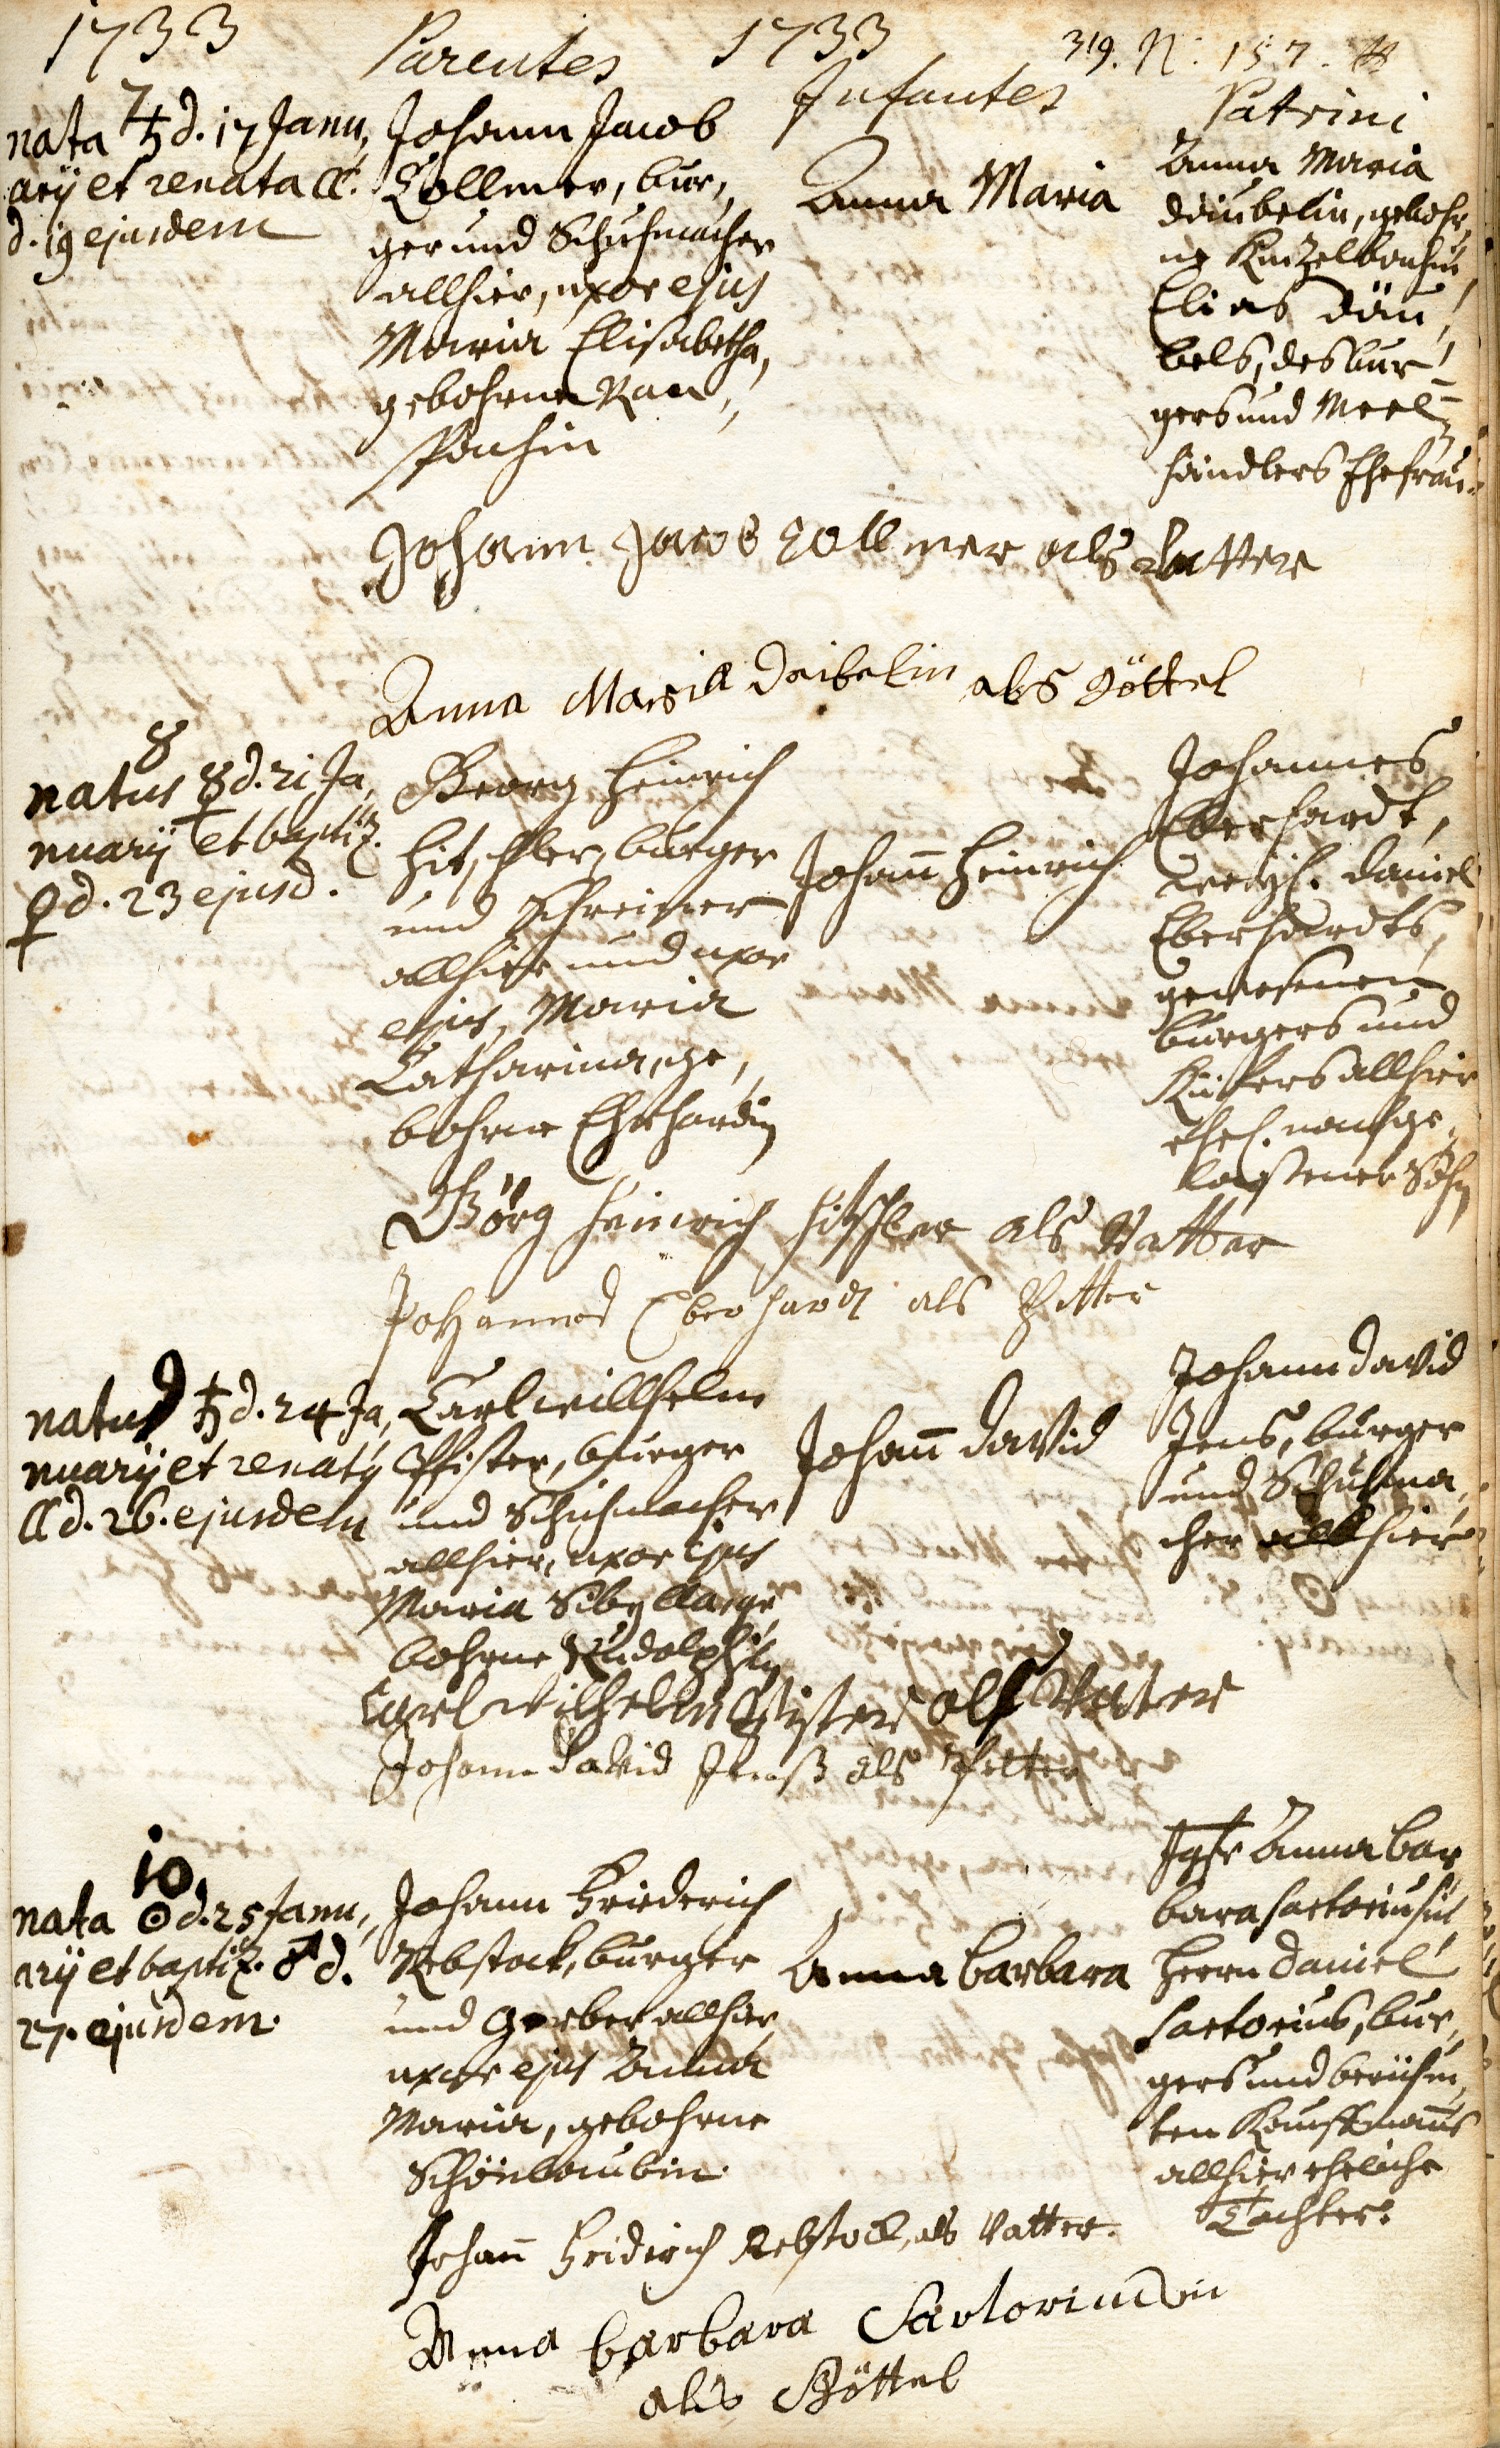 1733 Parentes 1733 319. N: 157.
Infantes Patrini
7
nata ♄ d. 17 Janu,
arÿ et renata ☾.
d. 19 ejusdem
Johann Jacob
Zollmer, bur,
ger und Schuhmacher
allhier, uxor ejus
Maria Elisabetha,
gebohrne Rau,,
Anna Maria
Anna Maria
däubelin, gebohr,
ne
Elias däu,
bels, des bur,
gers und Meel=
händlers Ehefrau.
Johann Jacob Zollmer als Vatter
Anna Maria Deibelin als Göttel
8
natus ☿ d. 21 Ja,
nuarÿ et baptiz.
♀ d. 23 ejusd.
Georg Heinrich
Hitschler, burger
und Schreiner
allhier und uxor
ejus, Maria
Catharina, ge,
bohrne Ehrhardin
Johañ Heinrich
Johannes
Eberhardt,
weyl. Daniel
Eberhardts,
gewesenen
burgers und
Küfers allhier
ehel. nachge,
lassener Sohn
Görg Heinrich Hitschler als Vatter
Johannes Eberhardt als Pfetter
9
natus ♄ d. 24 Ja,
nuarÿ et renatus
☾ d. 26. ejusdem
Carl Willhelm
Pfister, burger
und Schuhmacher
allhier, uxor ejus
Maria Sibylla, ge,
bohrne Rudolphin
Johañ David
Johann David
Jens, burger
und Schuhma,
cher allhier
Carl Wilhelm Pfister als Vatter
Johann David Jenß als Pfetter
10.
nata ☉ d. 25 Janu,,
arÿ et baptiz. ♂ d.
27. ejusdem.
Johann Friederich
Rebstock, burger
und Gerber allhier,
uxor ejus Anna
Maria, gebohrne
Schönlaubin.
Anna Barbara
Jgfr Anna Bar,
bara Sartoriusin,
Herrn Daniel
Sartorius, bur,
gers und berühm,
ten Kauffmañs
allhier eheliche
Tochter.
Johañ Friderich Rebstock, als Vatter.
Anna Barbara Sartoriusin
als Göttel